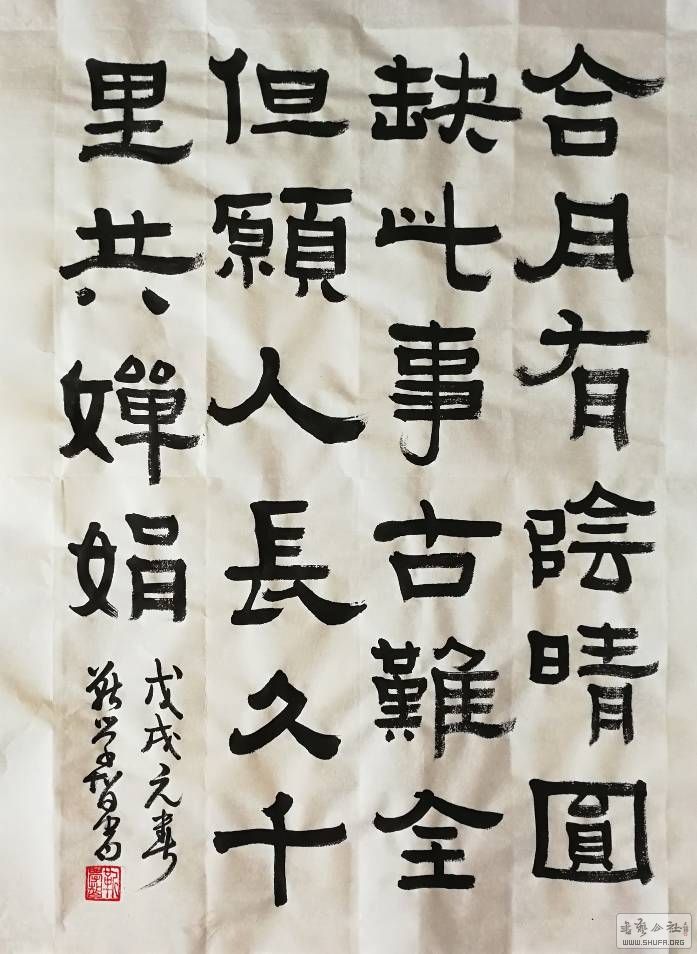 合月有陰晴圓
缺此事古難全
但願人長久千
里共嬋娟
戊戌元春
靳学智书
书艺公社
WWW.SHUFA.ORG